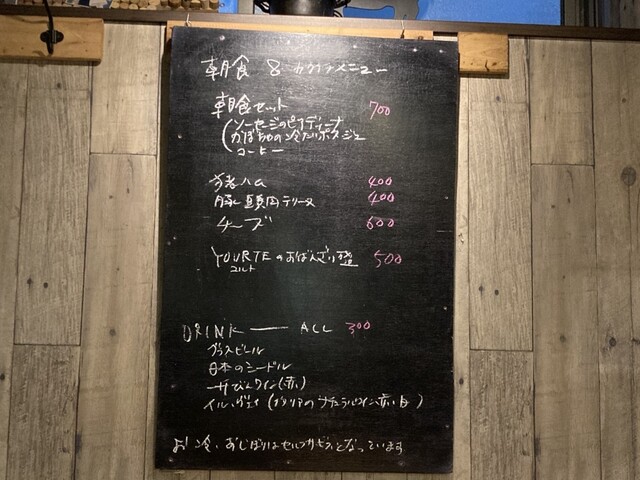 朝食 & カクウチメニュー
朝食セット 700
(ソーセージのピアディーナ
かぼちゃの冷たいポタージュ
コーヒー
ハム 400
豚頭肉テリーヌ 400
チーズ 600
YOURTEのおばんざい盛 500
ユルト
DRINK ALL 300
グラスビール
日本のシードル
ワイン(赤)
イル・ヴェイ(イタリアのナチュラルワイン赤 白)
お冷、おしぼりはセルフサービスとなっています